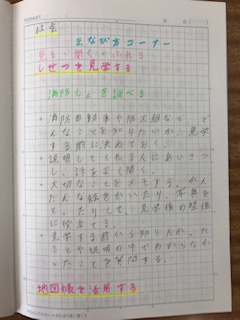 社会
まなび方コーナー
見る・聞く・ふれる
しせつを見学する
消防しょを調べる
・消防自動車や防火服など、ど
んなことを知りたいか、見学
する前に決めておく。
・説明して
し、話をよく聞く。
・大切なことをメモする。かん
たんな絵をかいたり、写真を
とったりして、見学後の整理
に役立てる。
・見学する前から知りたかった
ことや説明の中でわからなか
ったことを質問する。
地図帳を活用する